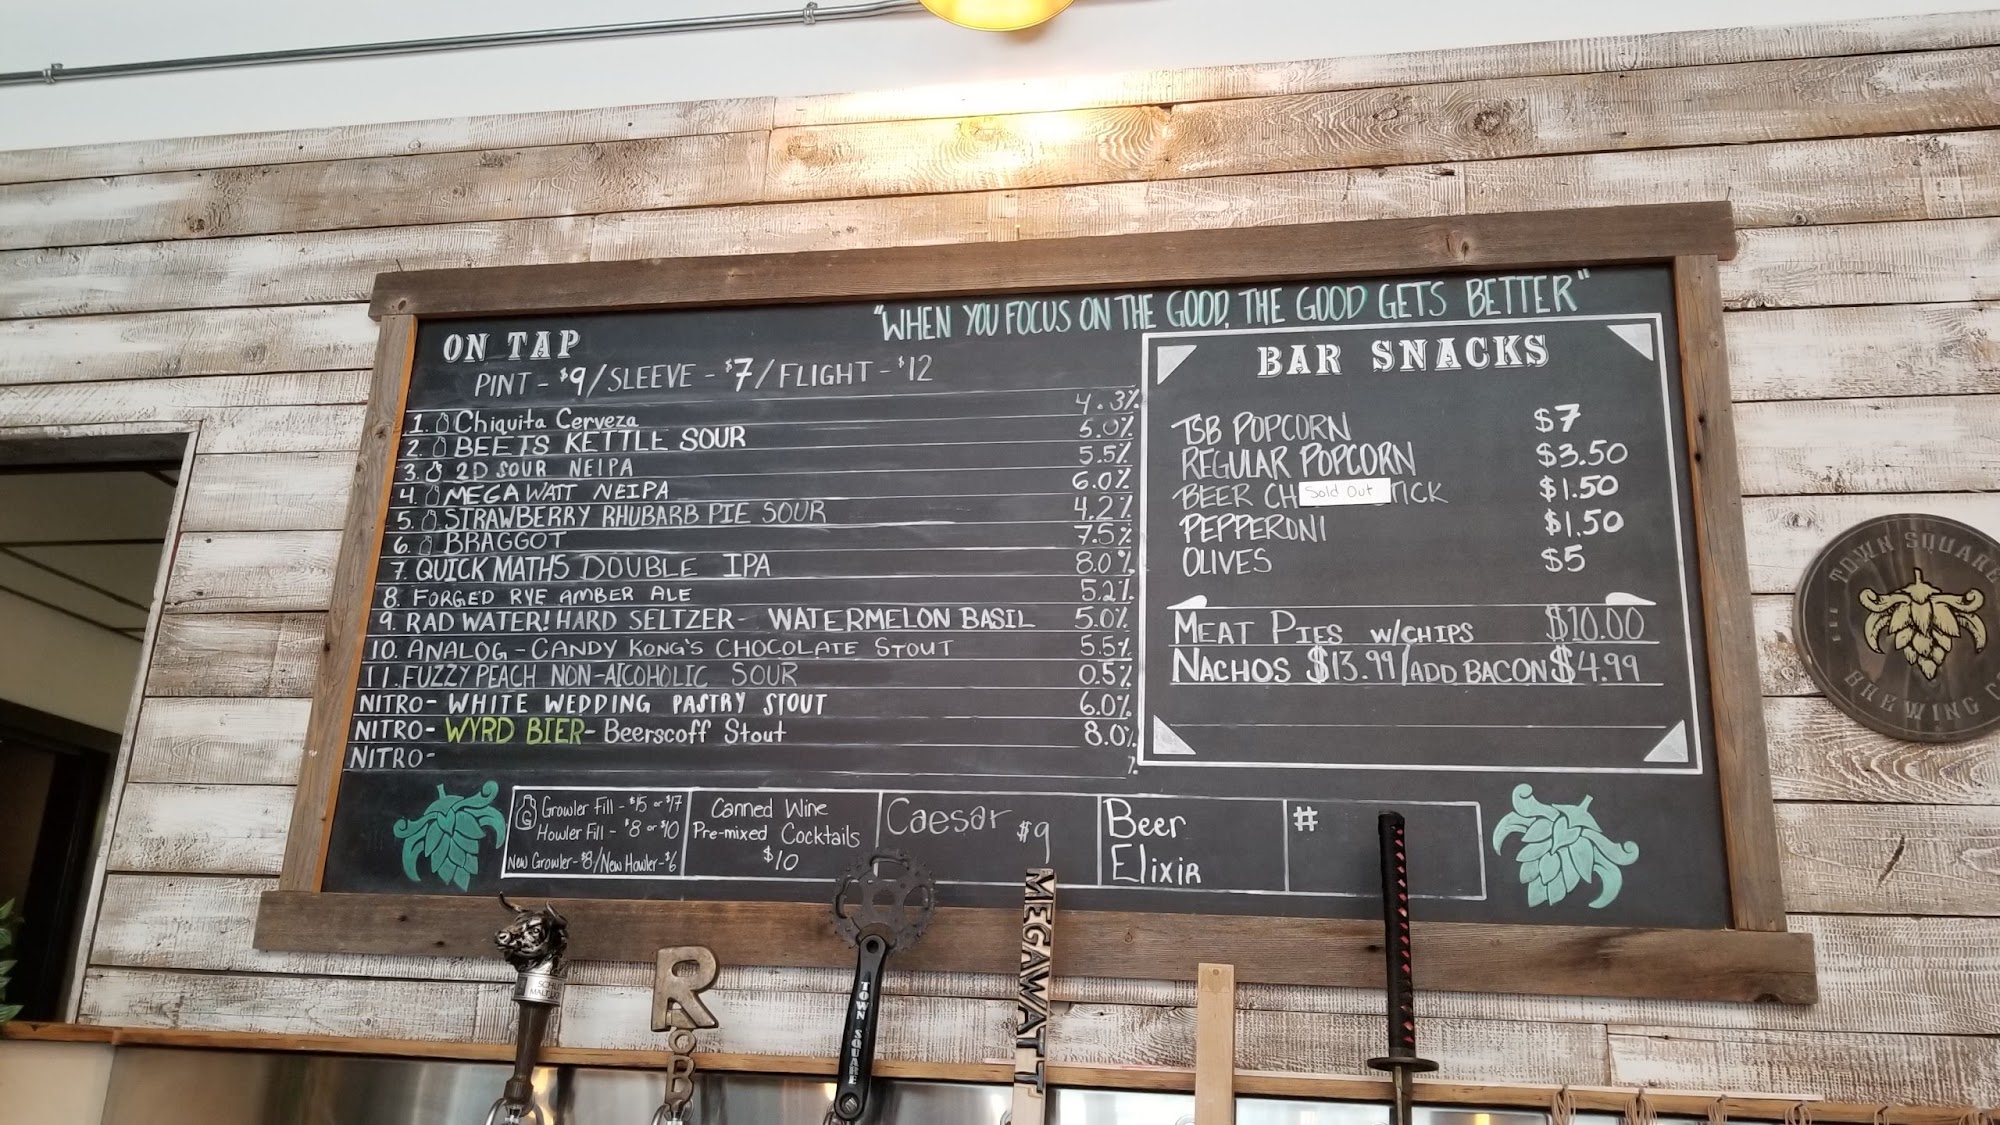 "WHEN YOU FOCUS ON THE GOOD, THE GOOD GETS BETTER"
ON TAP
PINT - $9 / SLEEVE - $7 / FLIGHT - $12
1. Chiquita Cerveza 4.3%
2. BEETS KETTLE SOUR 5.0%
3. 2D SOUR NEIPA 5.5%
4. MEGAWATT NEIPA 6.0%
5. STRAWBERRY RHUBARB PIE SOUR 4.2%
6. BRAGGOT 7.5%
7. QUICK MATHS DOUBLE IPA 8.0%
8. FORGED RYE AMBER ALE 5.2%
9. RAD WATER! HARD SELTZER - WATERMELON BASIL 5.0%
10. ANALOG - CANDY KONG'S CHOCOLATE STOUT 5.5%
11. FUZZY PEACH NON-ALCOHOLIC SOUR 0.5%
NITRO - WHITE WEDDING PASTRY STOUT 6.0%
NITRO - WYRD BIER - Beerscoff Stout 8.0%
NITRO - %
BAR SNACKS
TSB POPCORN $7
REGULAR POPCORN $3.50
BEER CH Sold Out TICK $1.50
PEPPERONI $1.50
OLIVES $5
MEAT PIES W/CHIPS $10.00
NACHOS $13.99/ADD BACON $4.99
G
Growler Fill - $15 or $17
Howler Fill - $8 or $10
New Growler - $8/New Howler - $6
Canned Wine
Pre-mixed Cocktails
$10
Caesar $9
Beer
Elixir
#
TOWN SQUARE
BREWING CO
ROB
TOWN SQUARE
MEGAWATT